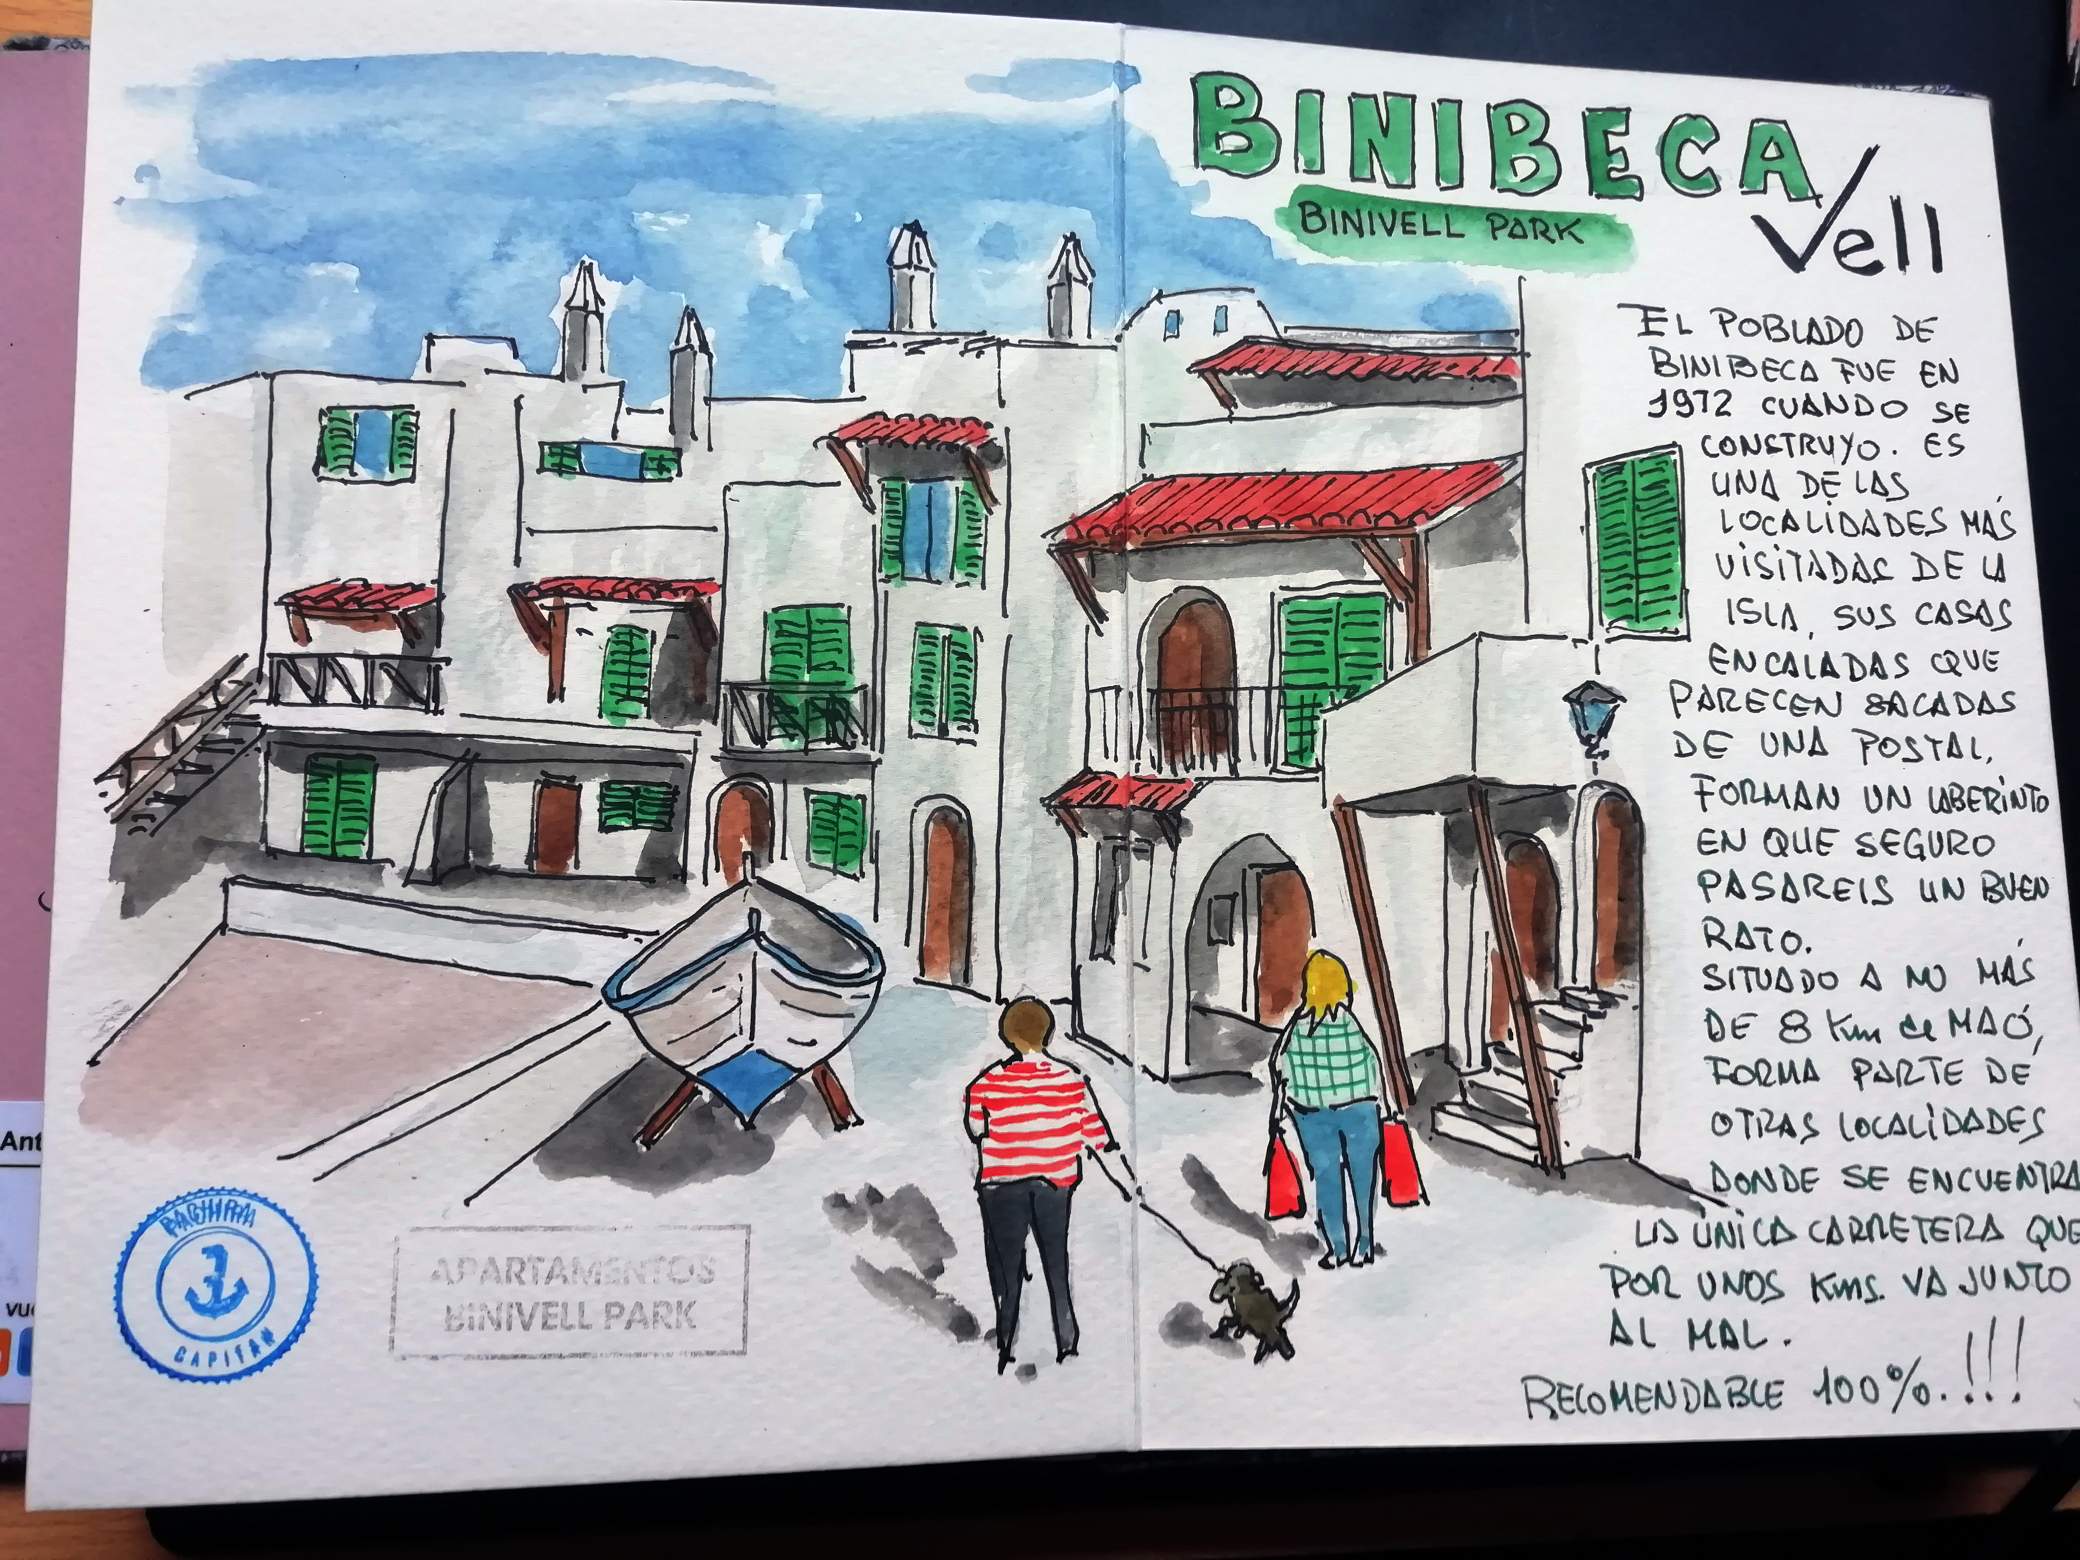 BINIBECA
Vell
BINIVELL PARK
EL POBLADO DE
BINIBECA FUE EN
1972 CUANDO SE
CONSTRUYO. ES
UNA DE LAS
LOCALIDADES MÁS
VISITADAS DE LA
ISLA, SUS CASAS
ENCALADAS QUE
PARECEN SACADAS
DE UNA POSTAL,
FORMAN UN LABERINTO
EN QUE SEGURO
PASAREIS UN BUEN
RATO.
SITUADO A NO MÁS
DE 8 Km de MAÓ,
FORMA PARTE DE
OTRAS LOCALIDADES
DONDE SE ENCUENTRA
LA ÚNICA CARRETERA QUE
POR UNOS Kms. VA JUNTO
AL MAL.
RECOMENDABLE 100%.!!!
CAPITAN
APARTAMENTOS
BINIVELL PARK
Ant
vue